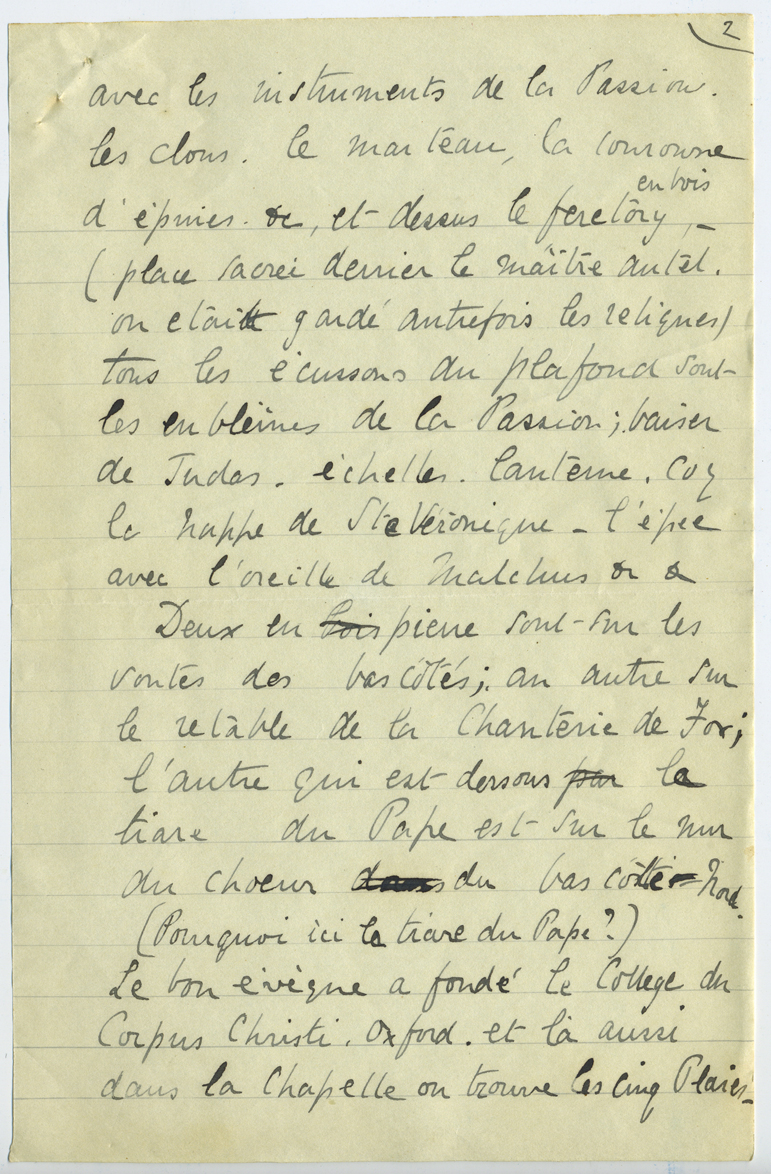 2
avec les instruments de la Passion.
les clous. le marteau, la couronne
en bois
d'épines. &c, et dessus le feretory, _
(place sacrée derrier le maître autel.
ou etait gardé autrefois les reliques)
tous les écussons du plafond sont
les emblèmes de la Passion; baiser
de Judas. échelles. lanterne. Coq
la nappe de Ste Véronique _ l'épée
avec l'oreille de Malchus & &
Deux en bois pierre sont sur les
voutes des bas côtés; un autre sur
le retable de la Chanterie de Fox;
l'autre qui est dessous par la
tiare du Pape est sur le mur
du choeur dans du bas côté Nord.
(Pourquoi ici la tiare du Pape?)
Le bon évêque a fondé le College du
Corpus Christi. Oxford. et là aussi
dans la Chapelle on trouve les cinq Plaies_